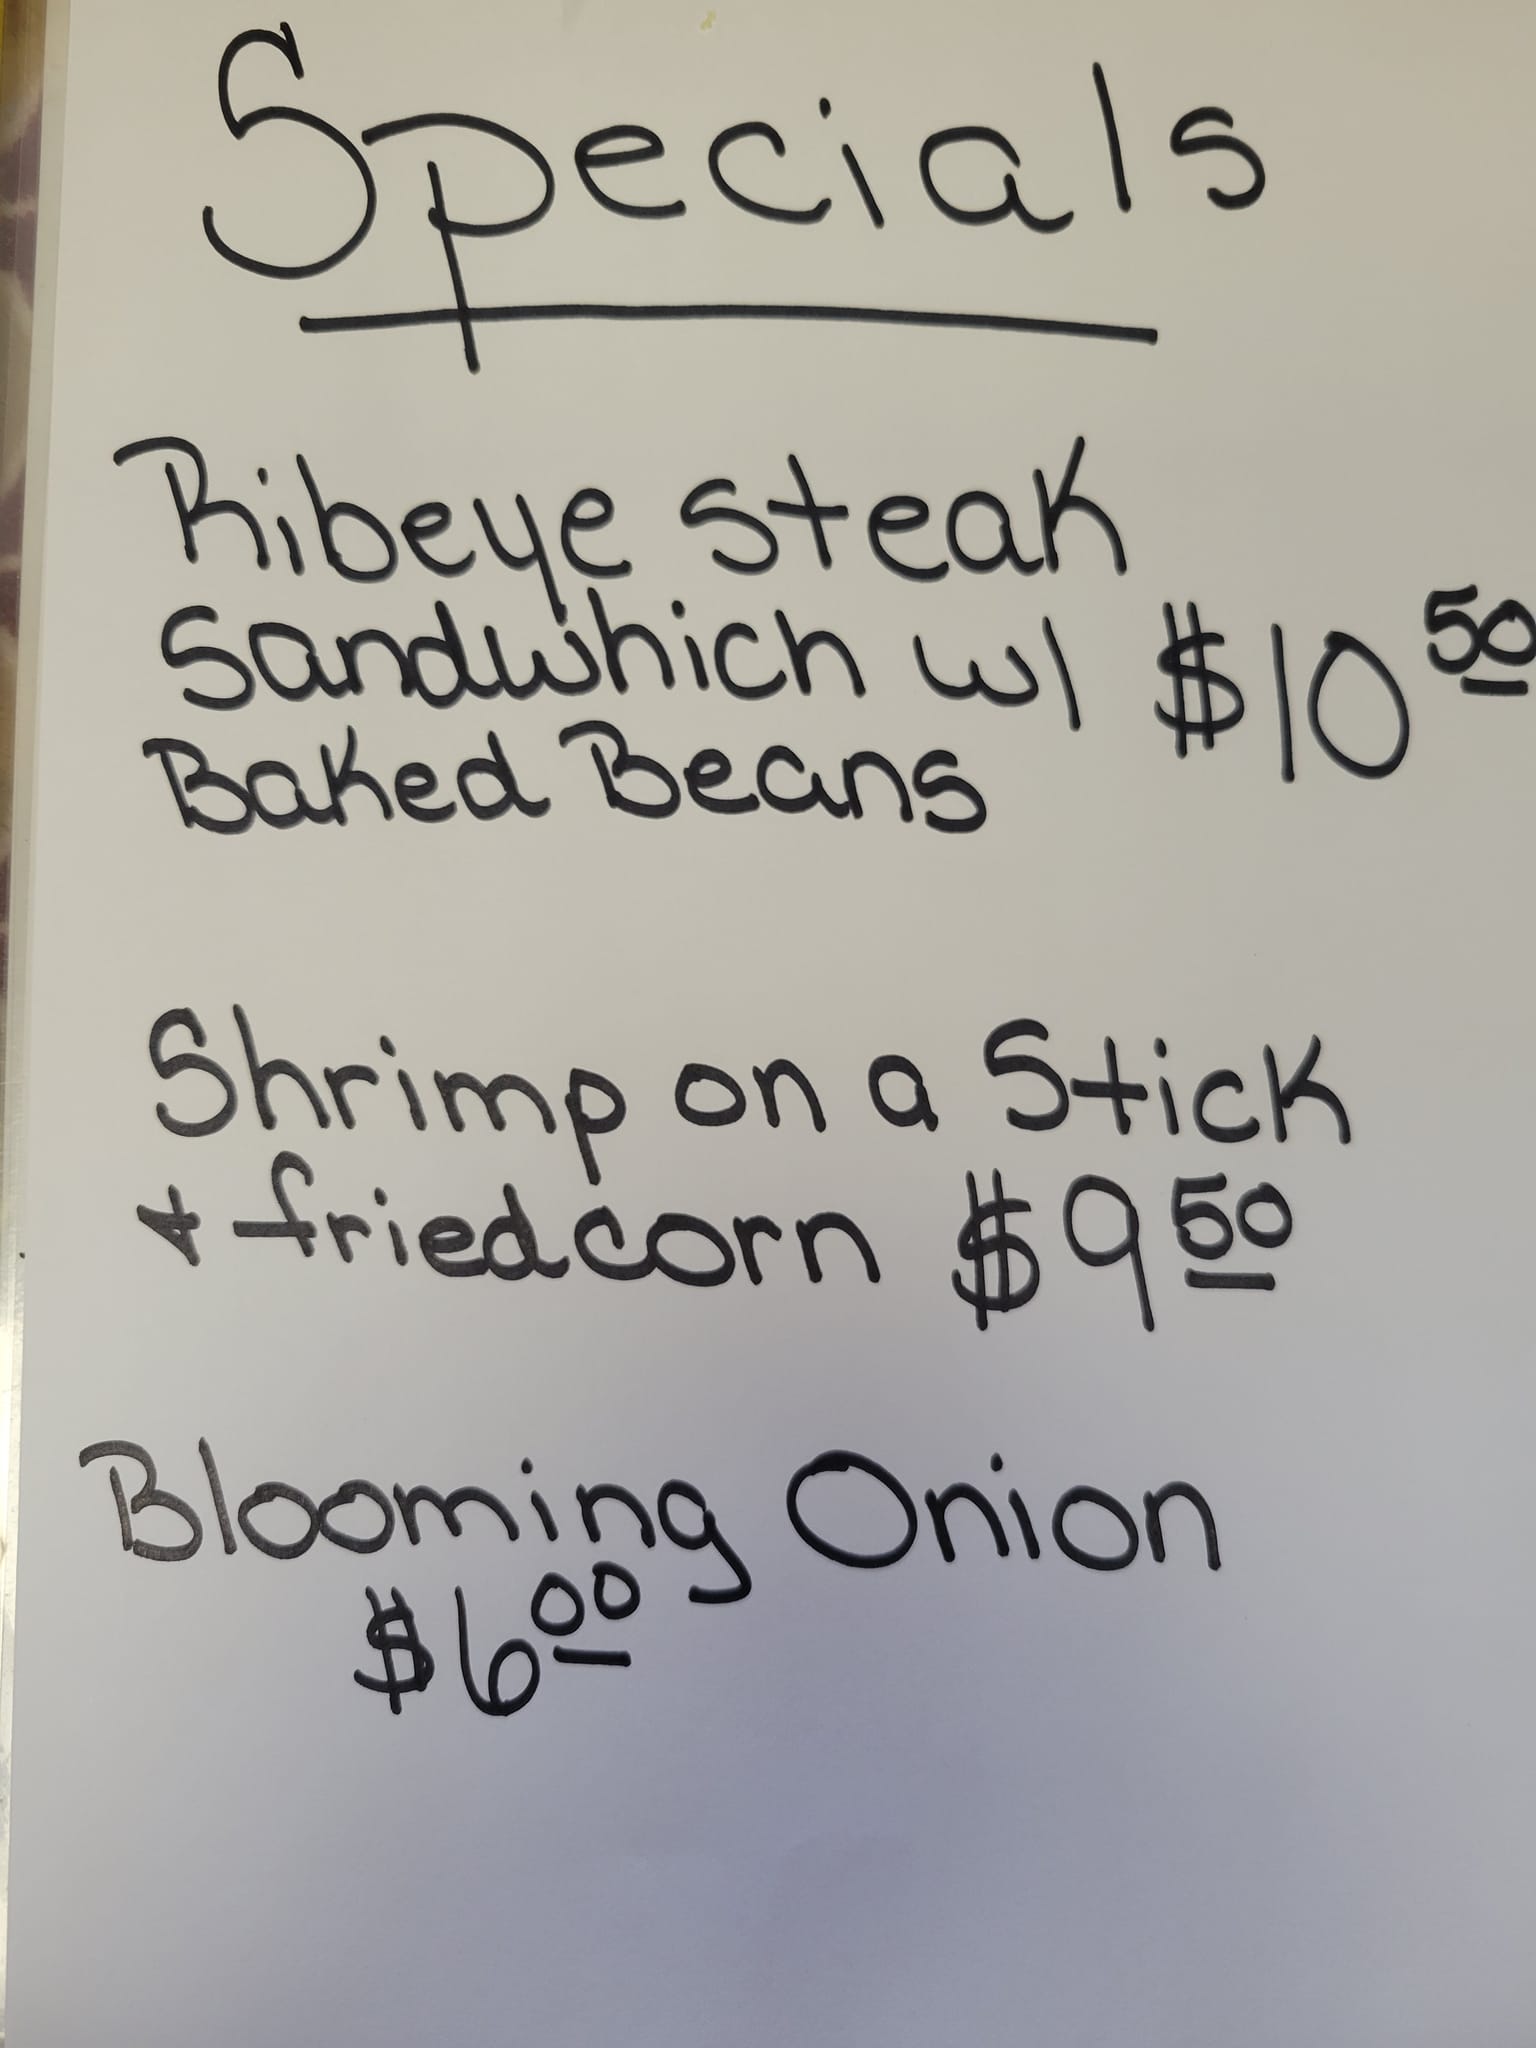 Specials
Ribeye steak
Sandwhich w/ $10 50
Baked Beans
Shrimp on a Stick
+ fried corn $9 50
Blooming Onion
$6 00